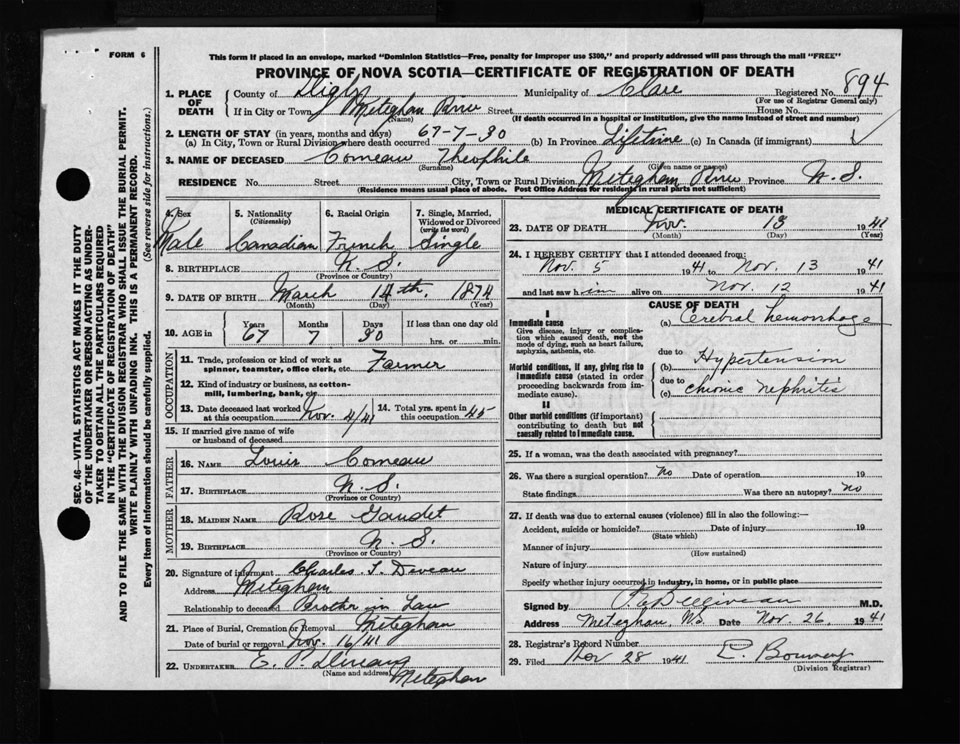 FORM 6
This form if placed in an envelope, marked "Dominion Statistics—Free, penalty for improper use $300," and properly addressed will pass through the mail "FREE"
PROVINCE OF NOVA SCOTIA—CERTIFICATE OF REGISTRATION OF DEATH
SEC. 46—VITAL STATISTICS ACT MAKES IT THE DUTY
OF THE UNDERTAKER OR PERSON ACTING AS UNDER-
TAKER TO OBTAIN ALL THE PARTICULARS REQUIRED
IN THE "CERTIFICATE OF REGISTRATION OF DEATH"
AND TO FILE THE SAME WITH THE DIVISION REGISTRAR WHO SHALL ISSUE THE BURIAL PERMIT.
WRITE PLAINLY WITH UNFADING INK. THIS IS A PERMANENT RECORD.
Every item of Information should be carefully supplied. (See reverse side for instructions.)
1. PLACE OF DEATH County of Digby Municipality of Clare Registered No. 894
(For use of Registrar General only)
If in City or Town Meteghan River Street House No.
(Name) (If death occurred in a hospital or institution, give the name instead of street and number)
2. LENGTH OF STAY (in years, months and days) 67-7-30
(a) In City, Town or Rural Division where death occurred (b) In Province Lifetime (c) In Canada (if immigrant)
3. NAME OF DECEASED Comeau Theophile
(Surname) (Given name or names)
RESIDENCE No. Street City, Town or Rural Division Meteghan River Province N. S.
(Residence means usual place of abode. Post Office Address for residents in rural parts not sufficient)
4. Sex Male
5. Nationality (Citizenship) Canadian
6. Racial Origin French
7. Single, Married, Widowed or Divorced (write the word) Single
8. BIRTHPLACE N. S.
(Province or Country)
9. DATE OF BIRTH March 14th. 1874
(Month) (Day) (Year)
10. AGE in Years 67 Months 7 Days 30 If less than one day old
hrs. or min.
OCCUPATION
11. Trade, profession or kind of work as spinner, teamster, office clerk, etc. Farmer
12. Kind of industry or business, as cotton-mill, lumbering, bank, etc.
13. Date deceased last worked at this occupation Nov. 4/41 14. Total yrs. spent in this occupation 45
15. If married give name of wife or husband of deceased
FATHER
16. NAME Louis Comeau
17. BIRTHPLACE N. S.
(Province or Country)
MOTHER
18. MAIDEN NAME Rose Gaudet
19. BIRTHPLACE N. S.
(Province or Country)
20. Signature of informant Charles T. Deveau
Address Meteghan
Relationship to deceased Brother in Law
21. Place of Burial, Cremation or Removal Meteghan
Date of burial or removal Nov. 16/41
22. UNDERTAKER E. P.
(Name and address) Meteghan
MEDICAL CERTIFICATE OF DEATH
23. DATE OF DEATH Nov. 13 1941
(Month) (Day) (Year)
24. I HEREBY CERTIFY that I attended deceased from:
Nov. 5 1941 to Nov. 13 1941
and last saw him alive on Nov. 12 1941
CAUSE OF DEATH
I
Immediate cause (a) Cerebral hemorrhage
Give disease, injury or complication which caused death, not the mode of dying, such as heart failure, asphyxia, asthenia, etc.
due to
Morbid conditions, if any, giving rise to Immediate cause (stated in order proceeding backwards from immediate cause). (b) Hypertension
due to
(c) chronic nephritis
II
Other morbid conditions (if important) contributing to death but not causally related to Immediate cause.
25. If a woman, was the death associated with pregnancy?
26. Was there a surgical operation? No Date of operation 19
State findings Was there an autopsy? no
27. If death was due to external causes (violence) fill in also the following:—
Accident, suicide or homicide? Date of injury 19
(State which)
Manner of injury
(How sustained)
Nature of injury
Specify whether injury occurred in industry, in home, or in public place
Signed by M.D.
Address Meteghan, N.S. Date Nov. 26, 1941
28. Registrar's Record Number
29. Filed Nov 28 1941
(Division Registrar)